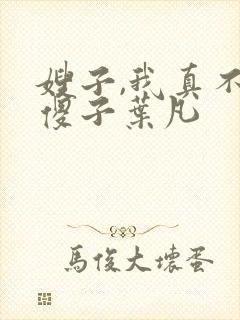 嫂子,我真不
傻子葉凡
馬俊大壞蛋